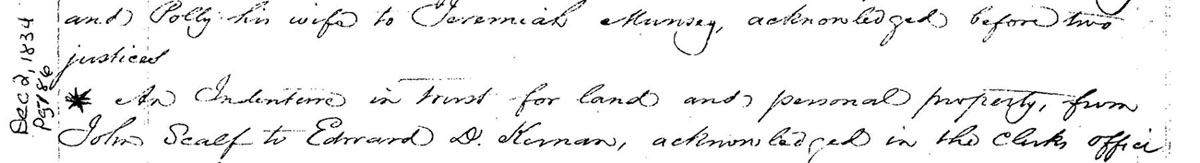 and Polly his wife to Jeremiah Munsey, acknowledged before two
justices
* An Indenture in trust for land and personal property, from
John Scalf to Edward D. Kernan, acknowledged in the Clerks office
Dec 2, 1834
pg 186